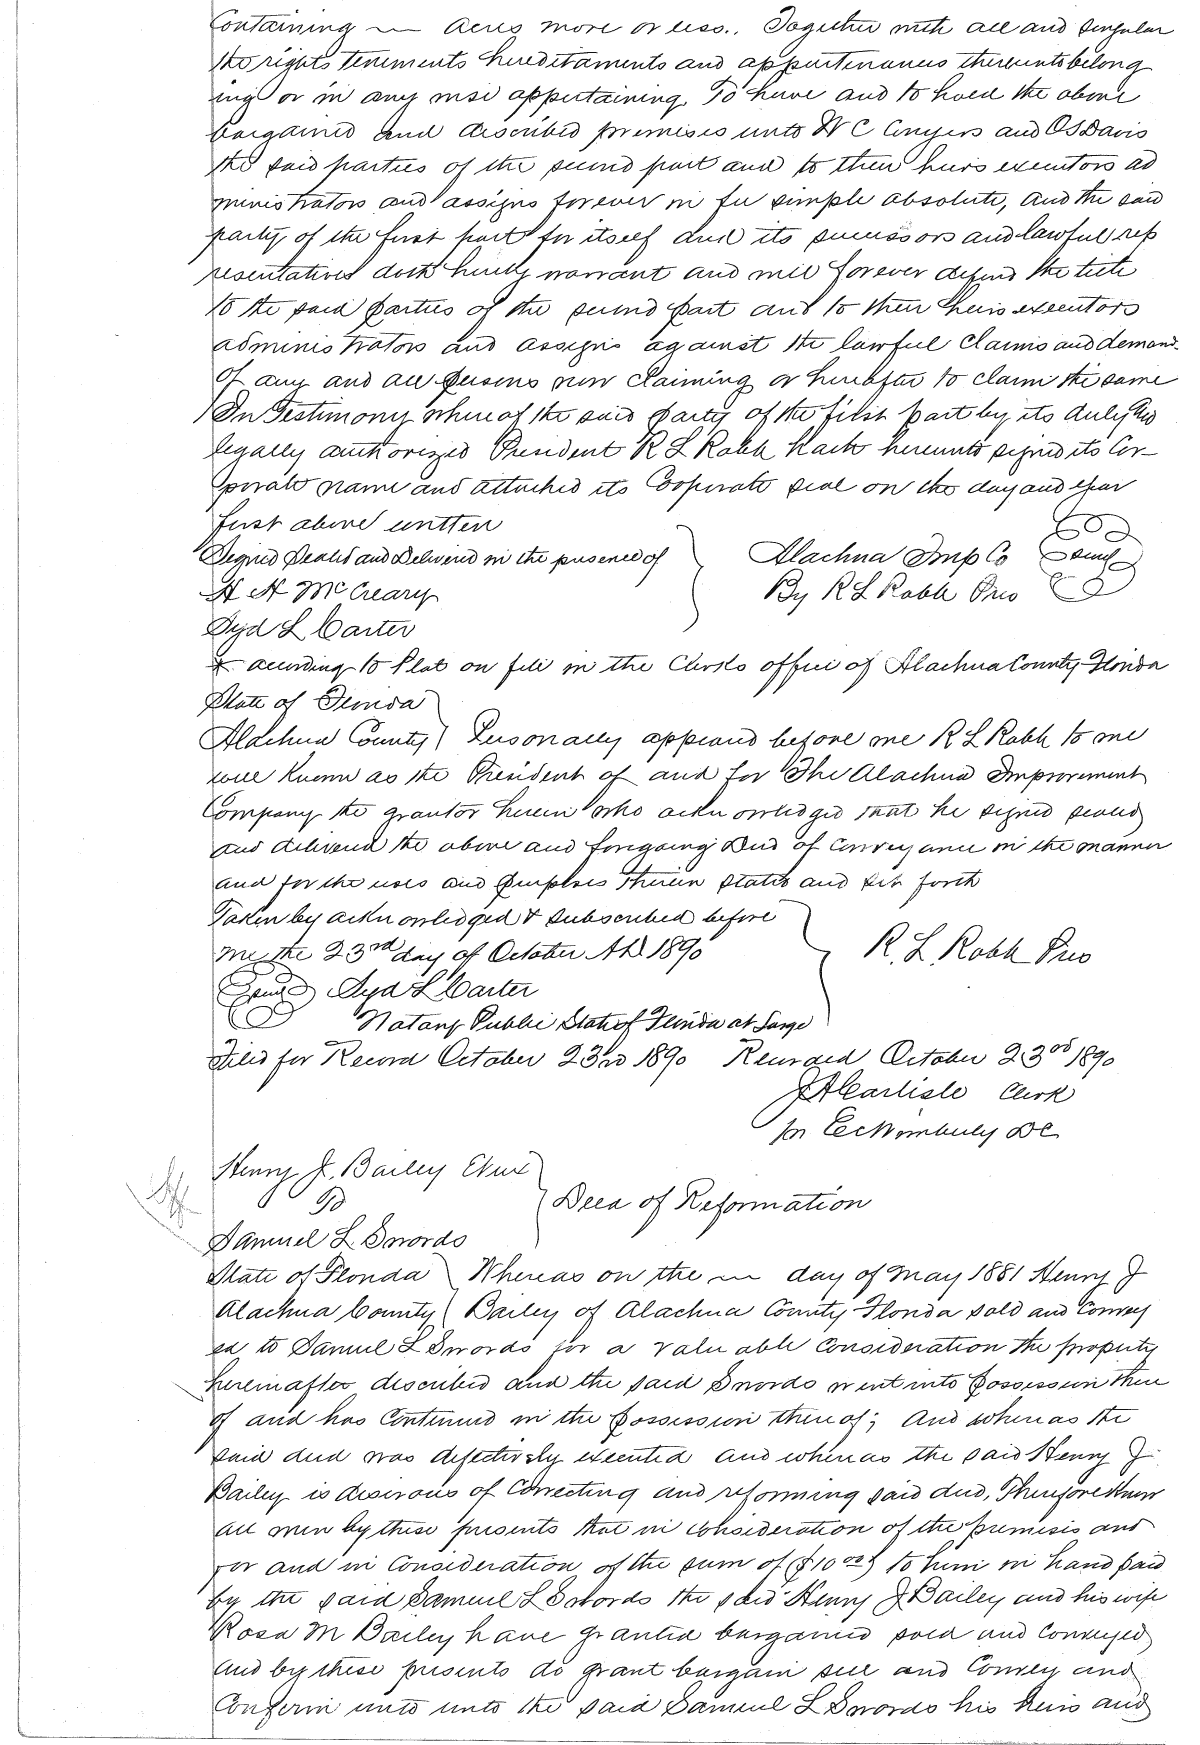 Containing — acres more or less. Together with all and singular
the rights tenements hereditaments and appurtenances thereunto belong
ing or in any wise appertaining, To have and to hold the above
bargained and described premises unto W C Conyers and O S Davis
the said parties of the second part and to their heirs executors ad
ministrators and assigns forever in fee simple absolute, and the said
party of the first part for itself and its successors and lawful rep
resentatives doth hereby warrant and will forever defend the title
to the said parties of the second part and to their heirs executors
administrators and assigns against the lawful claims and demand
of any and all persons now claiming or hereafter to claim the same
In Testimony whereof the said party of the first part by its duly and
legally authorized President R L Robb hath hereunto signed its Cor-
porate name and attached its Cooperate seal on the day and year
first above written
Signed Sealed and Delivered in the presence of
Alachua Imp Co Seal
H H McCreary
By R L Robb Pres
Syd L Carter
x according to Plat on file in the Clerks office of Alachua County Florida
State of Florida
Alachua County Personally appeared before me R L Robb to me
well known as the President of and for The Alachua Improvement
Company the grantor herein who acknowledged that he signed sealed
and delivered the above and foregoing Deed of Conveyance in the manner
and for the uses and purposes therein stated and set forth
Taken by acknowledged & subscribed before
me the 23rd day of October AD 1890
R. L. Robb Pres
Seal Syd L Carter
Notary Public State of Florida at Large
Filed for Record October 23rd 1890 Recorded October 23rd 1890
J A Carlisle Clerk
pr DC
Henry J. Bailey Et ux
To
Deed of Reformation
Samuel L. Swords
State of Florida Whereas on the — day of May 1881 Henry J
Alachua County Bailey of Alachua County Florida sold and Convey
ed to Samuel L Swords for a valuable consideration the property
hereinafter described and the said Swords went into possession there
of and has continued in the possession thereof; And whereas the
said deed was defectively executed and whereas the said Henry J.
Bailey is desirous of correcting and reforming said deed, Therefore Know
all men by these presents that in consideration of the premises and
for and in consideration of the sum of ($10.00) to him in hand paid
by the said Samuel L Swords the said Henry J Bailey and his wife
Rosa M Bailey have granted bargained sold and conveyed
and by these presents do grant bargain sell and Convey and
Confirm unto unto the said Samuel L Swords his heirs and